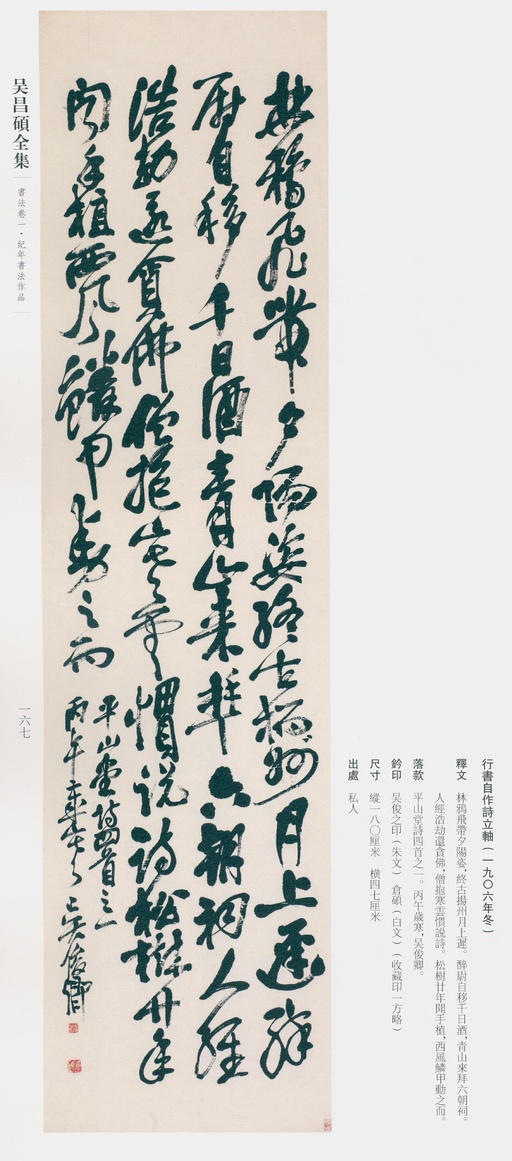 行書自作詩立軸（一九〇六年冬）
釋文 林鴉飛帶夕陽姿，終古揚州月上遲。醉尉自移千日酒，青山來拜六朝祠。
人經浩劫還貪佛，僧抱寒雲慣説詩。松樹廿年聞手植，西風鱗甲動之而。
落款 平山堂詩四首之一。丙午歲寒，吴俊卿。
鈐印 吴俊之印（朱文） 倉碩（白文）（收藏印一方略）
尺寸 縱一八〇厘米 橫四七厘米
出處 私人
林鴉飛帶夕陽姿終古揚州月上遲醉
尉自移千日酒青山來拜六朝祠人經
浩劫還貪佛僧抱寒雲慣説詩松樹廿年
聞手植西風鱗甲動之而
平山堂詩四首之一
丙午歲寒吴俊卿
吴昌碩全集
書法卷一·紀年書法作品
一六七